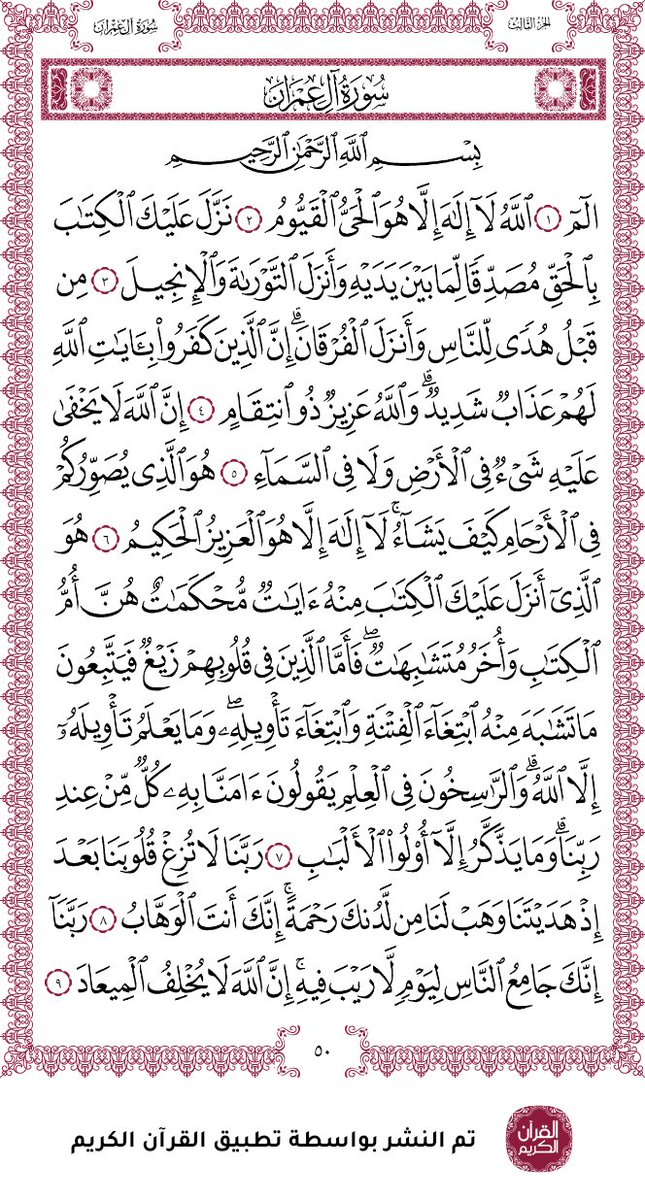 الجزء الثالث
سُورَةُ آلِ عِمْرَانَ
سُورَةُ آلِ عِمْرَانَ
بِسْمِ ٱللَّهِ ٱلرَّحْمَٰنِ ٱلرَّحِيمِ
الٓمٓ ١ ٱللَّهُ لَآ إِلَٰهَ إِلَّا هُوَ ٱلْحَىُّ ٱلْقَيُّومُ ٢ نَزَّلَ عَلَيْكَ ٱلْكِتَٰبَ
بِٱلْحَقِّ مُصَدِّقًا لِّمَا بَيْنَ يَدَيْهِ وَأَنزَلَ ٱلتَّوْرَىٰةَ وَٱلْإِنجِيلَ ٣ مِن
قَبْلُ هُدًى لِّلنَّاسِ وَأَنزَلَ ٱلْفُرْقَانَ ۗ إِنَّ ٱلَّذِينَ كَفَرُوا۟ بِـَٔايَٰتِ ٱللَّهِ
لَهُمْ عَذَابٌ شَدِيدٌ ۗ وَٱللَّهُ عَزِيزٌ ذُو ٱنتِقَامٍ ٤ إِنَّ ٱللَّهَ لَا يَخْفَىٰ
عَلَيْهِ شَىْءٌ فِى ٱلْأَرْضِ وَلَا فِى ٱلسَّمَآءِ ٥ هُوَ ٱلَّذِى يُصَوِّرُكُمْ
فِى ٱلْأَرْحَامِ كَيْفَ يَشَآءُ ۚ لَآ إِلَٰهَ إِلَّا هُوَ ٱلْعَزِيزُ ٱلْحَكِيمُ ٦ هُوَ
ٱلَّذِىٓ أَنزَلَ عَلَيْكَ ٱلْكِتَٰبَ مِنْهُ ءَايَٰتٌ مُّحْكَمَٰتٌ هُنَّ أُمُّ
ٱلْكِتَٰبِ وَأُخَرُ مُتَشَٰبِهَٰتٌ ۖ فَأَمَّا ٱلَّذِينَ فِى قُلُوبِهِمْ زَيْغٌ فَيَتَّبِعُونَ
مَا تَشَٰبَهَ مِنْهُ ٱبْتِغَآءَ ٱلْفِتْنَةِ وَٱبْتِغَآءَ تَأْوِيلِهِۦ ۖ وَمَا يَعْلَمُ تَأْوِيلَهُۥٓ
إِلَّا ٱللَّهُ ۗ وَٱلرَّٰسِخُونَ فِى ٱلْعِلْمِ يَقُولُونَ ءَامَنَّا بِهِۦ كُلٌّ مِّنْ عِندِ
رَبِّنَا ۗ وَمَا يَذَّكَّرُ إِلَّآ أُو۟لُوا۟ ٱلْأَلْبَٰبِ ٧ رَبَّنَا لَا تُزِغْ قُلُوبَنَا بَعْدَ
إِذْ هَدَيْتَنَا وَهَبْ لَنَا مِن لَّدُنكَ رَحْمَةً ۚ إِنَّكَ أَنتَ ٱلْوَهَّابُ ٨ رَبَّنَآ
إِنَّكَ جَامِعُ ٱلنَّاسِ لِيَوْمٍ لَّا رَيْبَ فِيهِ ۚ إِنَّ ٱللَّهَ لَا يُخْلِفُ ٱلْمِيعَادَ ٩
٥٠
القرآن الكريم
تم النشر بواسطة تطبيق القرآن الكريم